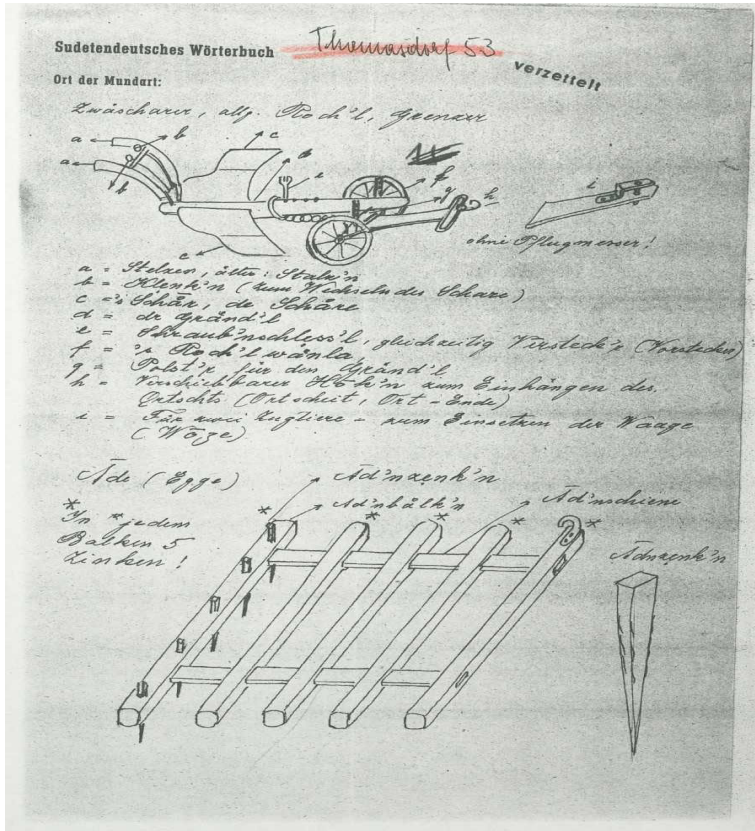 Sudetendeutsches Wörterbuch Thomasdorf 53
verzettelt
Ort der Mundart:
Zwäscharer, allg. Roch'l, Grenzer
a b c d e f g h i
a b c
ohne Pflugmesser!
a = Stelzen, älter: Stalz'n
b = Klenk'n (zum Wechseln des Schare)
c = 's Schâr, de Schâre
d = dr Grând'l
e = Shraub'nschless'l, gleichzeitig Virsteck'r (Vorstecker)
f = 's Roch'lwânla
g = Polst'r für den Grând'l
h = Verschiebbarer Hôk'n zum Einhängen des
Ortschts (Ortscheit, Ort = Ende)
i = Für zwei Zugtiere = zum Einsetzen der Waage
(Wôge)
Äde (Egge)
Äd'nzenk'n
Äd'nbâlk'n
Äd'nschiene
* In * jedem
Balken 5
Zinken!
Ädnzenk'n